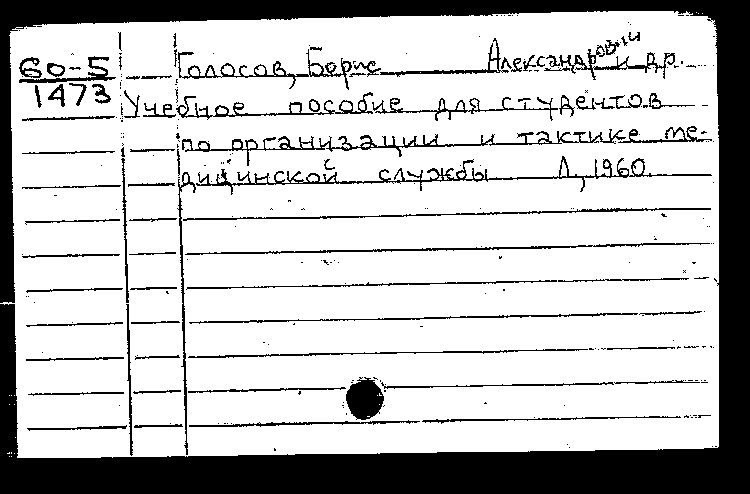 60-5 Голосов, Борис Александрович и др.
1473 Учебное пособие для студентов
по организации и тактике ме-
дицинской службы Л., 1960.